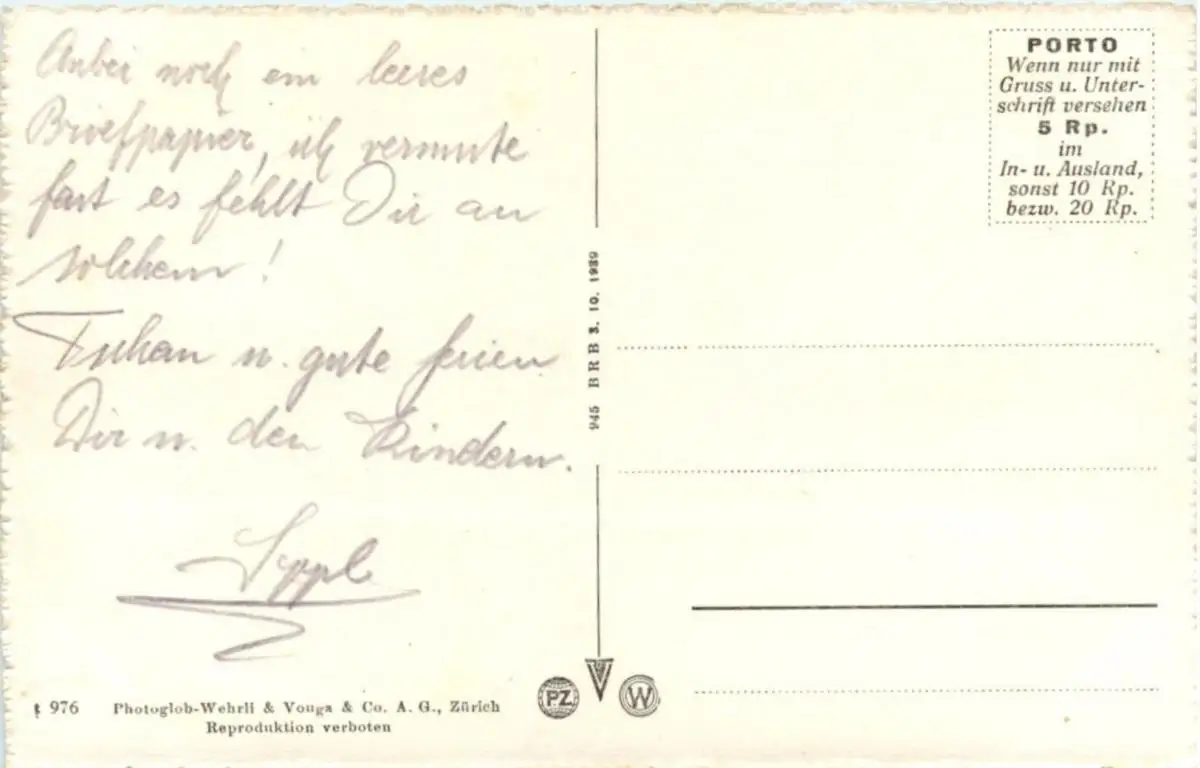 Anbei noch ein leeres
Briefpapier, ich vermute
fast es fehlt Dir an
solchem!
u. gute ferien
Dir u. den Kindern.
Seppl
PORTO
Wenn nur mit
Gruss u. Unter-
schrift versehen
5 Rp.
im
In- u. Ausland,
sonst 10 Rp.
bezw. 20 Rp.
945 BRB 3. 10. 1939
976 Photoglob-Wehrli & Vouga & Co. A. G., Zürich
Reproduktion verboten
PZ
V
W